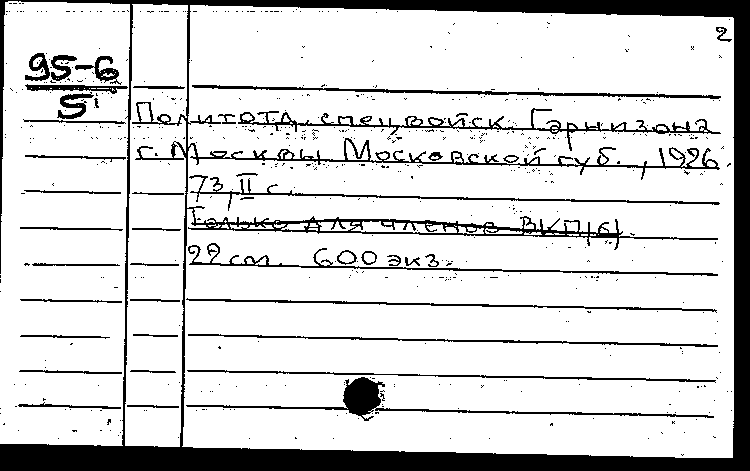 2
95-6
5
Политотд. спецвойск Гарнизона
г. Москвы Московской губ., 1926.
73, II с.
Только для членов ВКП(б).
22 см. 600 экз.